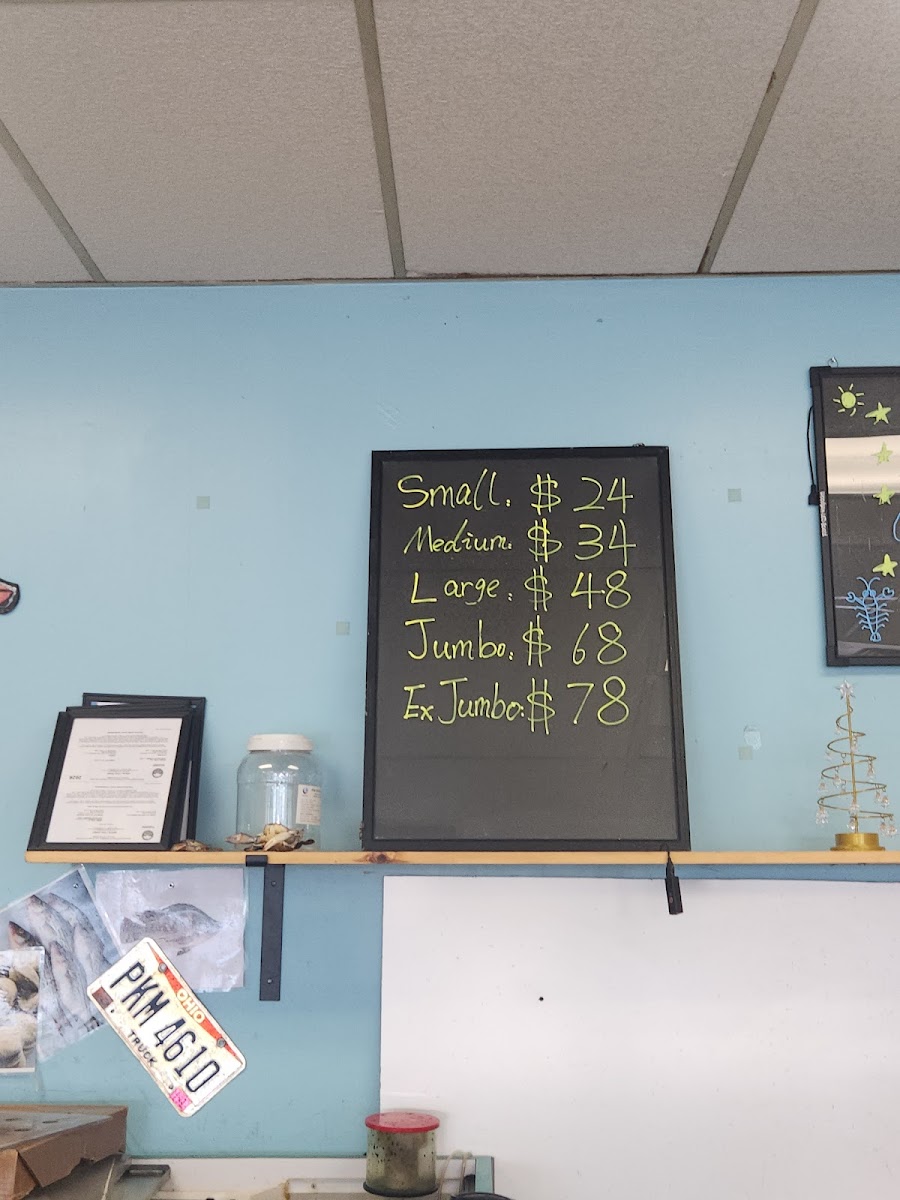 Small: $ 24
Medium: $ 34
Large: $ 48
Jumbo: $ 68
Ex Jumbo: $ 78
OHIO
PKM 4610
TRUCK